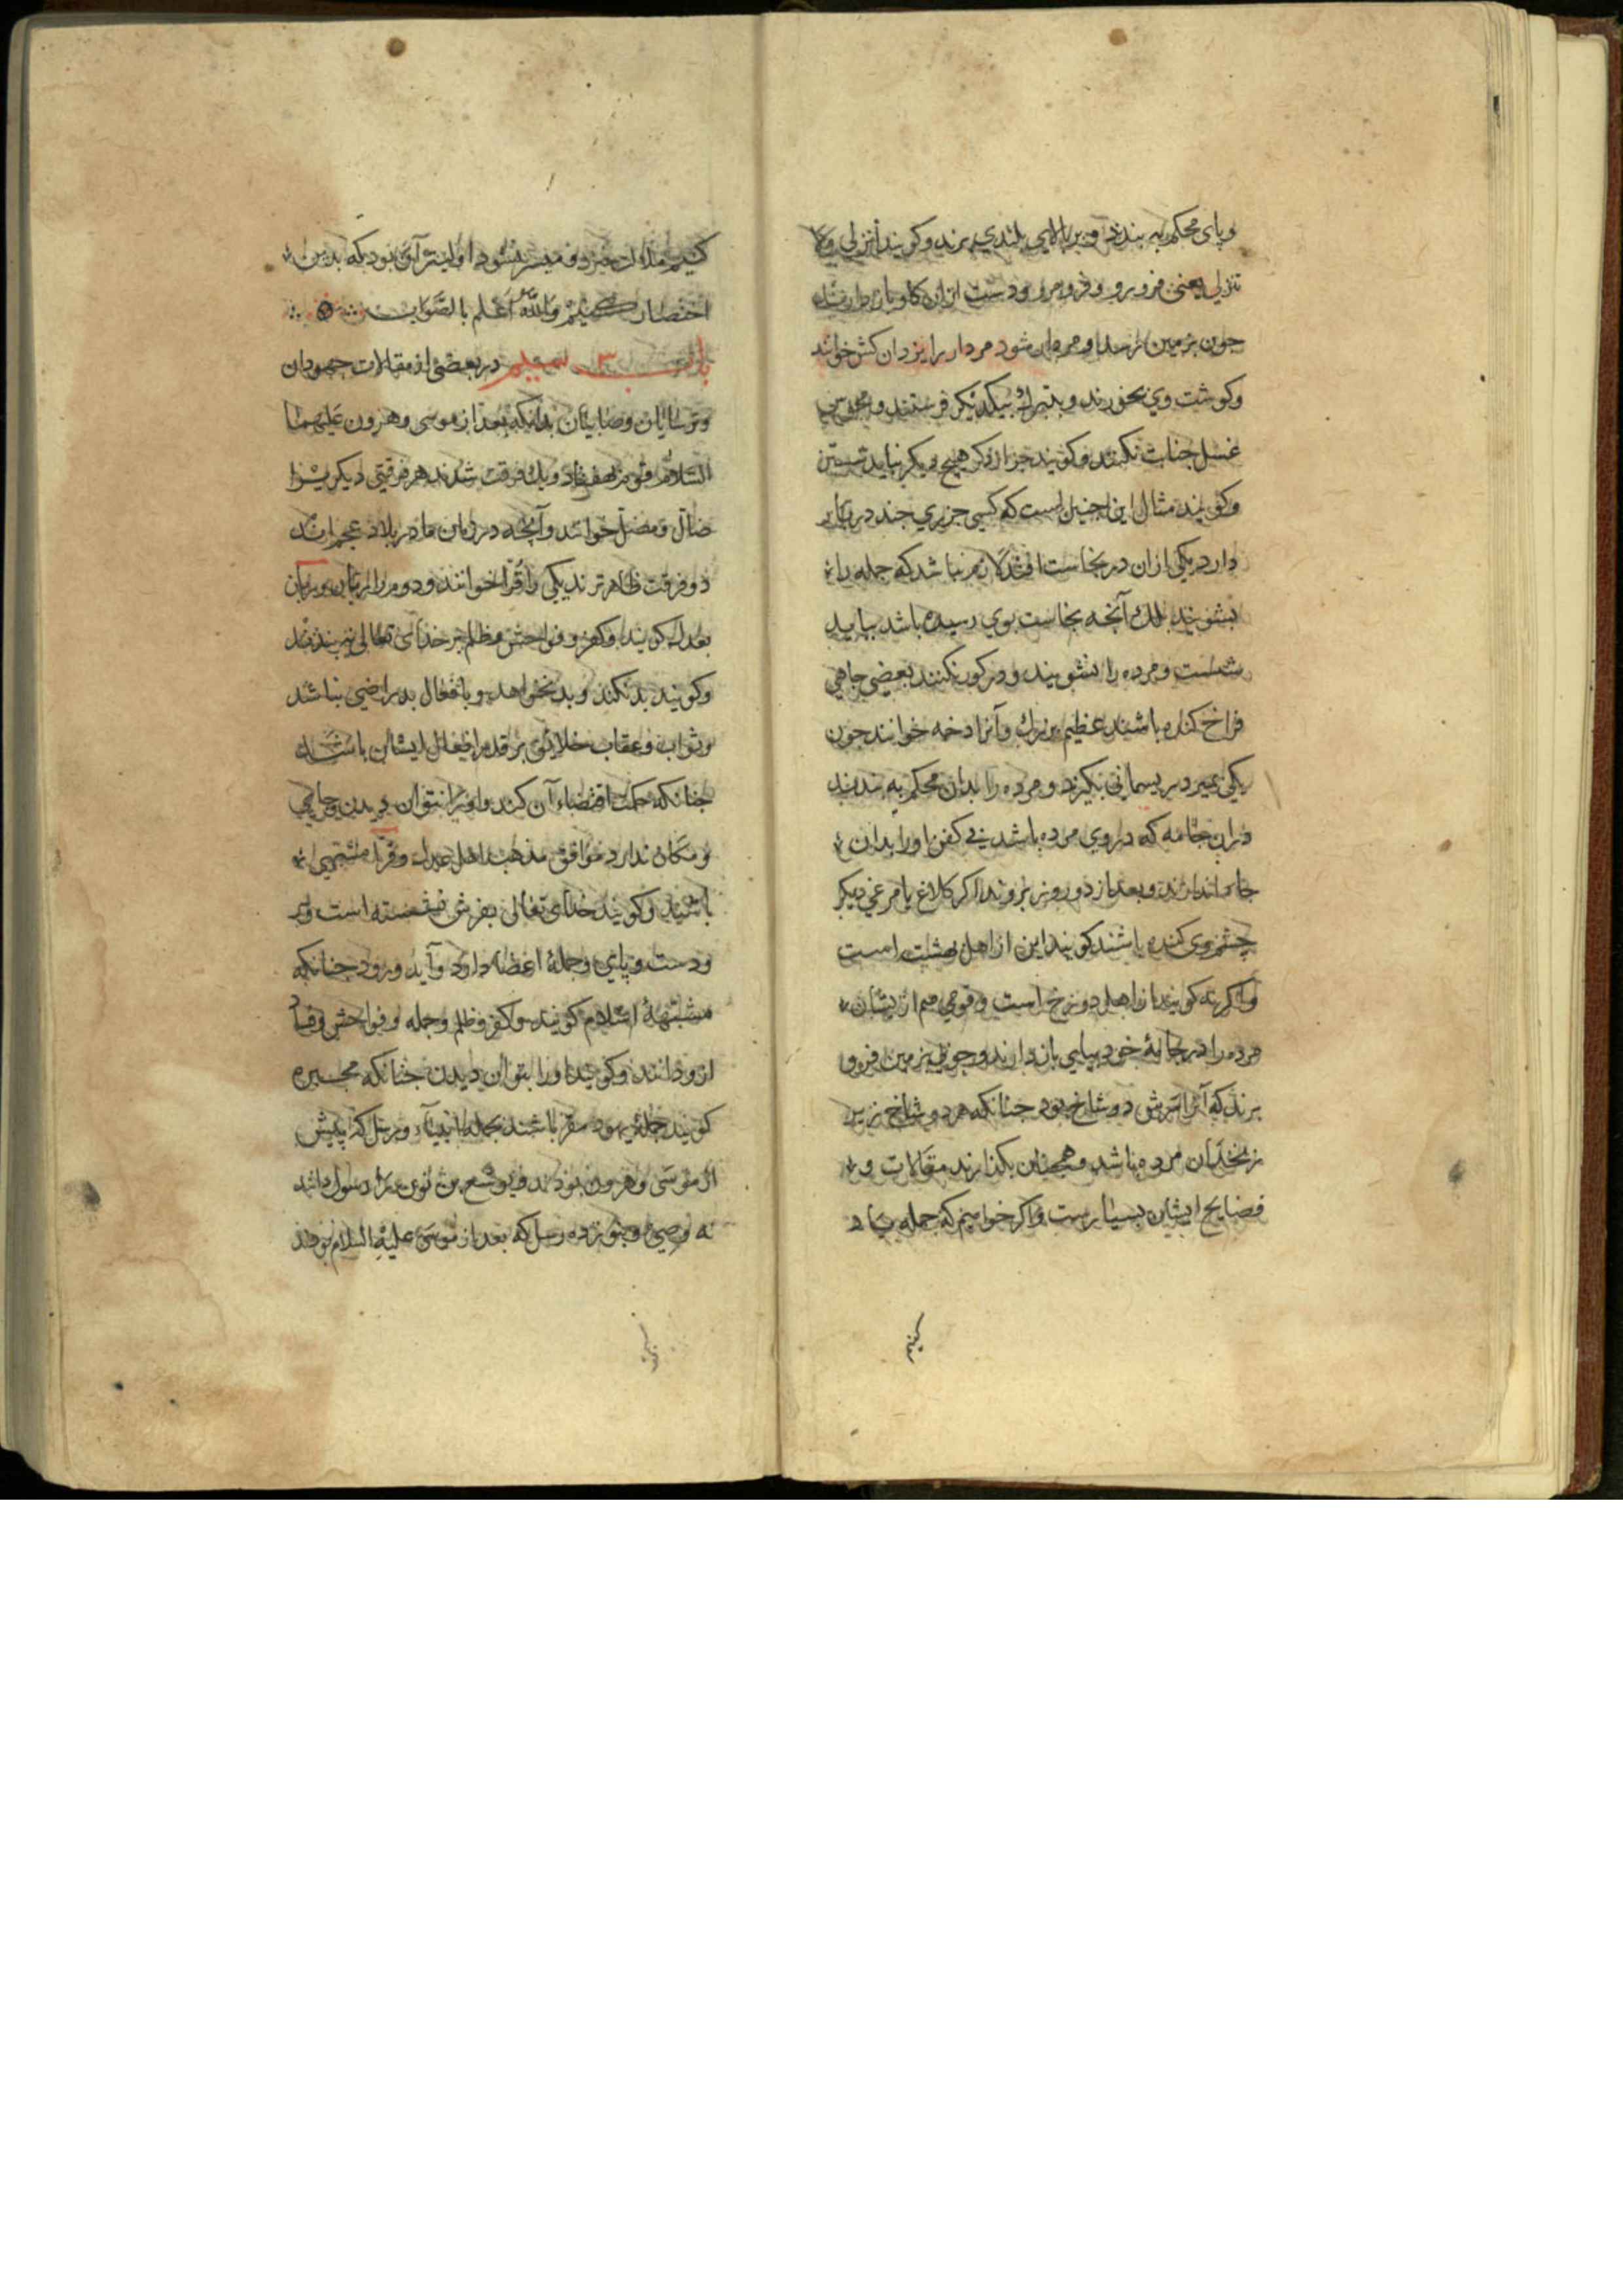 و پای محکم به بندند و بر بالایی بلندی برند و کویند انزلی و لا
تنزلی یعنی فرو رو و فرو مرو و دست ازان کاو باز دارند
جون بزمین رسد و مردار شود مردار را یزدان کش خوانند
و کوشت وی بخورند و بتبرک بیکدیکر فرستند و مجوس
غسل جنابت نکنند و کویند جز از ذکر هیج دیکر نباید شستن
و کویند مثال این جنین است که کسی جزری جند در کنار
دارد یکی ازان در نجاست افتد لازم نباشد که جمله را
بشویند بلک آنچه نجاست بوی رسیده باشد بباید
شست و مرده را نشویند و در کور نکنند بعضی جاهی
فراخ کنده باشند عظیم بزرك و آنرا دخمه خوانند جون
یکی بمیرد ریسمانی بکیرند و مرده را بدان محکم به بندند
دران جامه که در وی مرده باشد بی کفن او را بدان
جاه اندازند و بعد از دو روز بروند اکر کلاغ یا مرغی دیکر
چشم وی کنده باشند کویند این از اهل بهشت است
و اکر نه کویند از اهل دوزخ است و قومی هم از یشان
مرده را در خانهٔ خود بپای باز دارند و جوبی بزمین فرو
برند که آنرا سرش دو شاخ بود جنانکه هر دو شاخ زیر
زنخدان مرده باشد و همجنان بکذارند مقالات و
فضایح ایشان بسیارست و اکر خواهیم که جمله یاد
کنیم
کنیم میسر نشود اولیتر آن بود که بدین
اختصار کنیم والله اعلم بالصواب
باب سیم در بعضی از مقالات جهودان
و ترسایان و صابیان بدانکه بعد از موسی و هرون علیهما
السلام قوم هفتاد و یك فرقت شدند هر فرقتی دیکریرا
ضال و مضل خوانند و آنچه در زمان ما در بلاد عجم اند
دو فرقت ظاهرترند یکی را قرا خوانند و دوم را ربیان و ربیان
بعدل کویند و کفر و فواحش و ظلم بر خدای تعالی نه بندند
و کویند بد نکند و بد نخواهد و بافعال بد راضی نباشد
و ثواب و عقاب خلائق بر قدر افعال ایشان باشد
جنانکه حکمت اقتضاء آن کند و او را نتوان دیدن و جای
و مکان ندارد موافق مذهب اهل عدل و قرا مشبهی
باشند و کویند خدای تعالی بعرش نشسته است و سر
و دست و پای و جملهٔ اعضا دارد و آید و رود جنانکه
مشبههٔ اسلام کویند و کفر و ظلم و جمله و فواحش و فساد
ازو دانند و کویند او را بتوان دیدن جنانکه مجبره
کویند جملهٔ یهود مقر باشند بجمله انبیاء و رسل که پیش
از موسی و هرون بودند و یوشع بن نون را رسول دانند
نه وصی و بنوزده رسل که بعد از موسی علیه السلام بودند